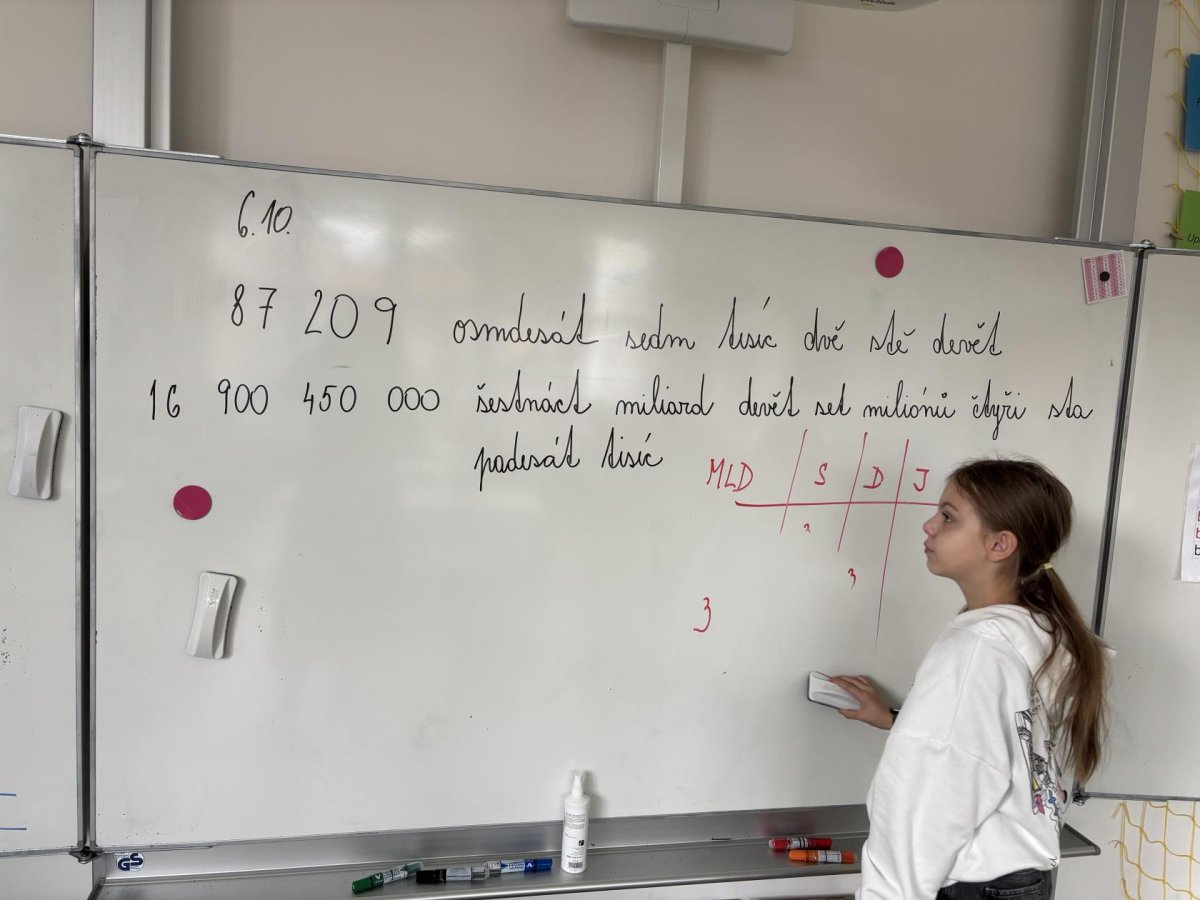 6.10.
87 209 osmdesát sedm tisíc dvě stě devět
16 900 450 000 šestnáct miliard devět set miliónů čtyři sta
padesát tisíc
MLD S D J
3
3
GS